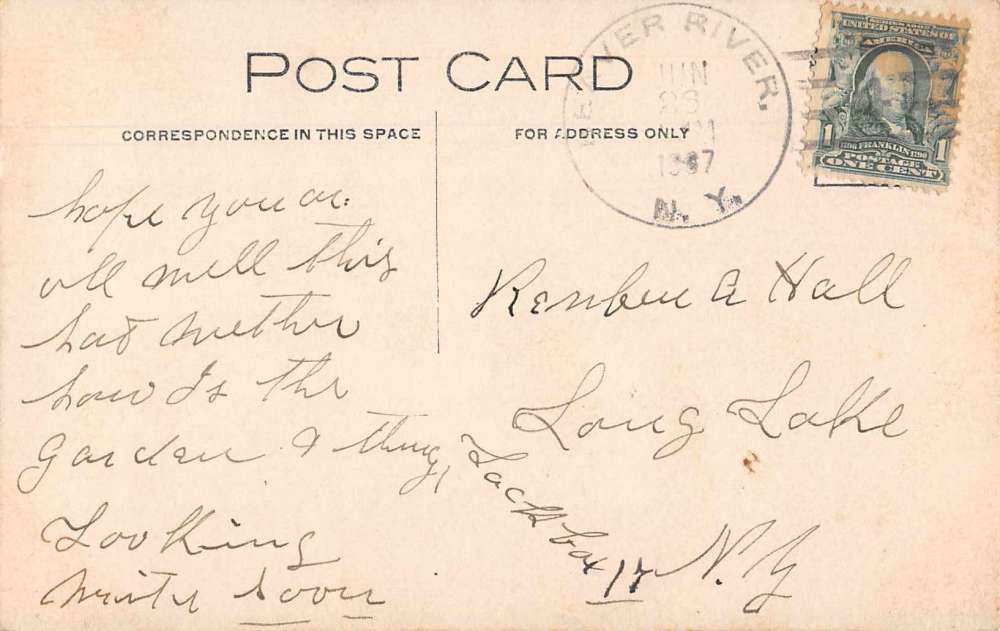 POST CARD
CORRESPONDENCE IN THIS SPACE
FOR ADDRESS ONLY
VER RIVER.
JUN
26
M
1907
N. Y.
SERIES 1902
UNITED STATES OF
AMERICA
1
1
1706 FRANKLIN 1790
POSTAGE
ONE CENT
hope you ar.
all well this
hat wether
how Is the
Garden & thing,
Looking
write Soon
Renben A Hall
Long Lake
Lack box 17 N. Y